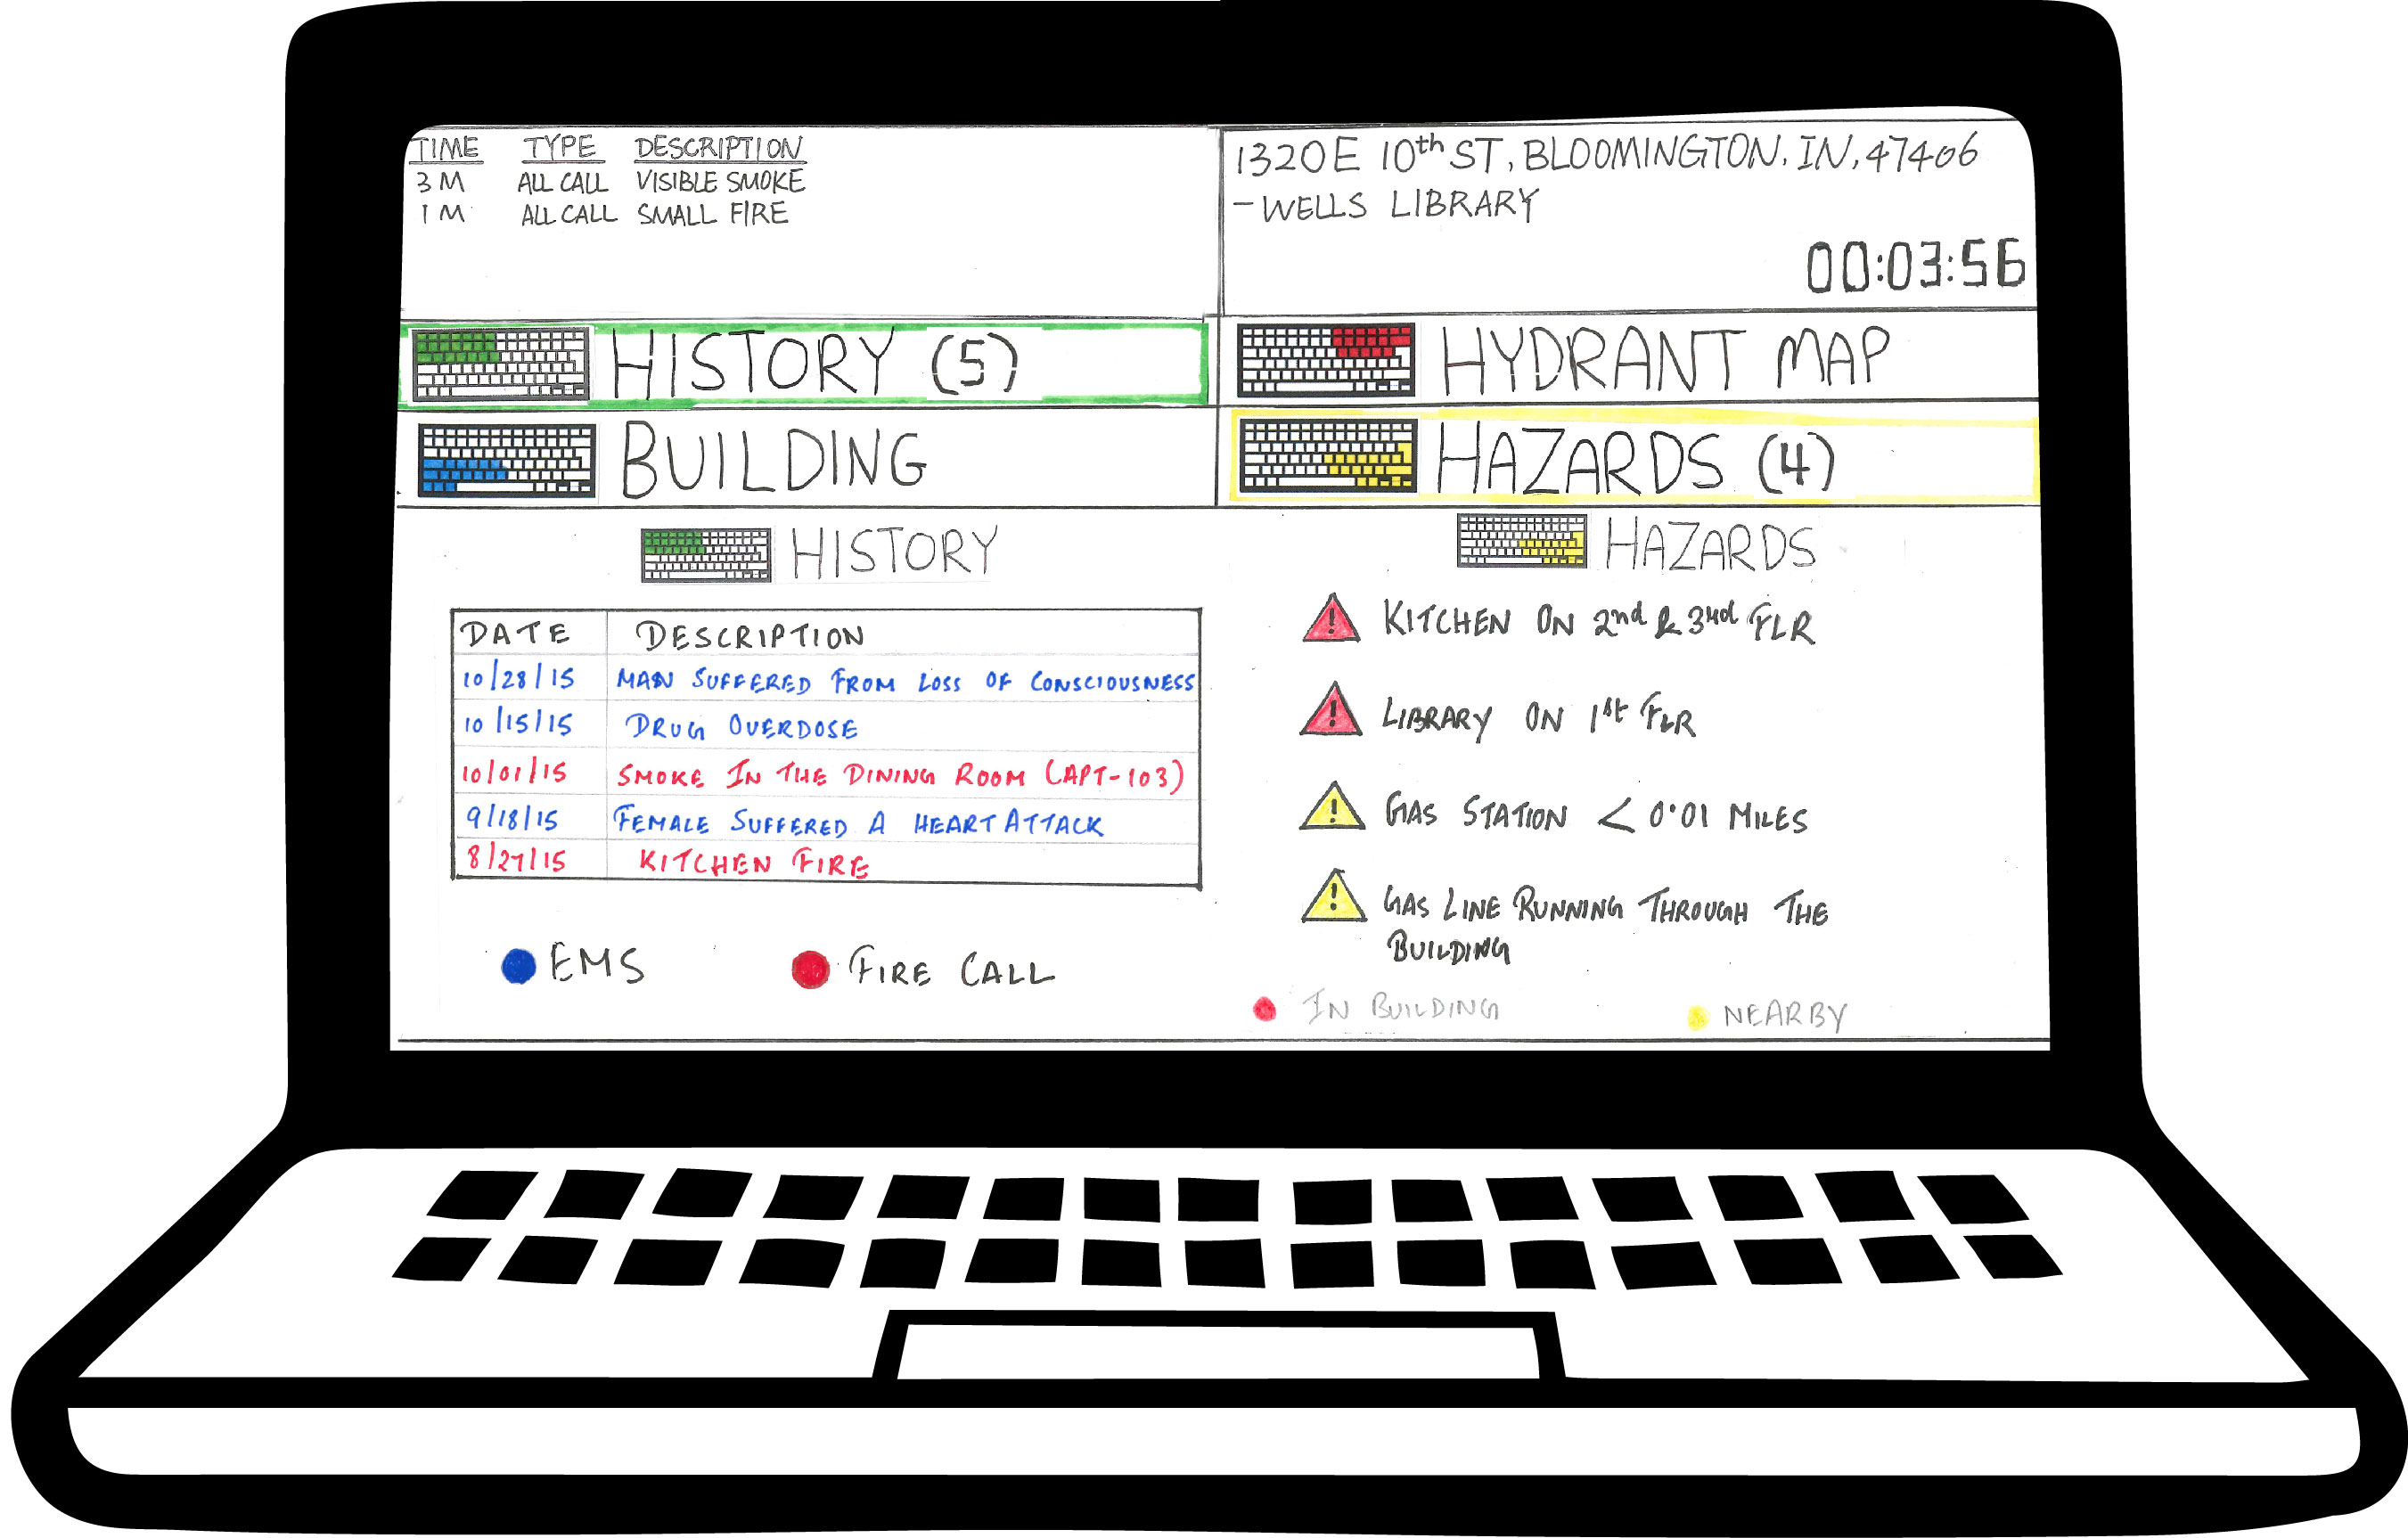 TIME TYPE DESCRIPTION
3 M ALL CALL VISIBLE SMOKE
1 M ALL CALL SMALL FIRE
1320 E 10th ST, BLOOMINGTON, IN, 47406
- WELLS LIBRARY
00:03:56
HISTORY (5)
HYDRANT MAP
BUILDING
HAZARDS (4)
HISTORY
DATE DESCRIPTION
10/28/15 MAN SUFFERED FROM LOSS OF CONSCIOUSNESS
10/15/15 DRUG OVERDOSE
10/01/15 SMOKE IN THE DINING ROOM (APT-103)
9/18/15 FEMALE SUFFERED A HEART ATTACK
8/27/15 KITCHEN FIRE
EMS FIRE CALL
HAZARDS
! KITCHEN ON 2nd & 3rd FLR
! LIBRARY ON 1st FLR
! GAS STATION < 0.01 MILES
! GAS LINE RUNNING THROUGH THE
BUILDING
IN BUILDING NEARBY